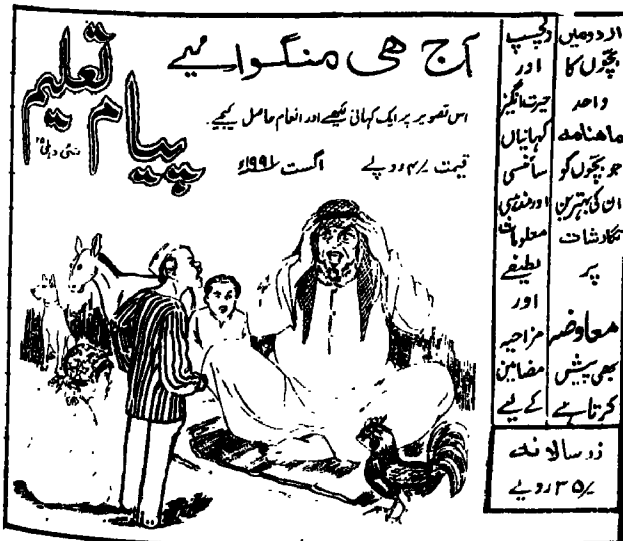 آج ھی منگوایئے
پیام تعلیم
نئی دہلی ۲۵
اس تصویر پر ایک کہانی لکھیے اور انعام حاصل کیجیے۔
قیمت ۴/ روپے اگست ۱۹۹۱ء
اردو میں
بچّوں کا
واحد
ماھنامہ
جو بچّوں کو
ان کی بہترین
نگارشات
پر
معاوضہ
بھی پیش
کرتا ہے
دلچسپ
اور
حیرت انگیز
کہانیاں
سائنسی
اور مذہبی
معلومات
لطیفے
اور
مزاحیہ
مضامین
کے لیے
زر سالانہ
۳۵/ روپے